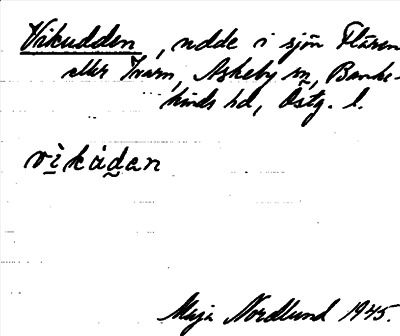 Vikudden, udde i sjön Flären
eller Ivarn, Askeby sn, Banke-
kinds hd, Östg. l.
vìkùdan
Maja Nordlund 1945.